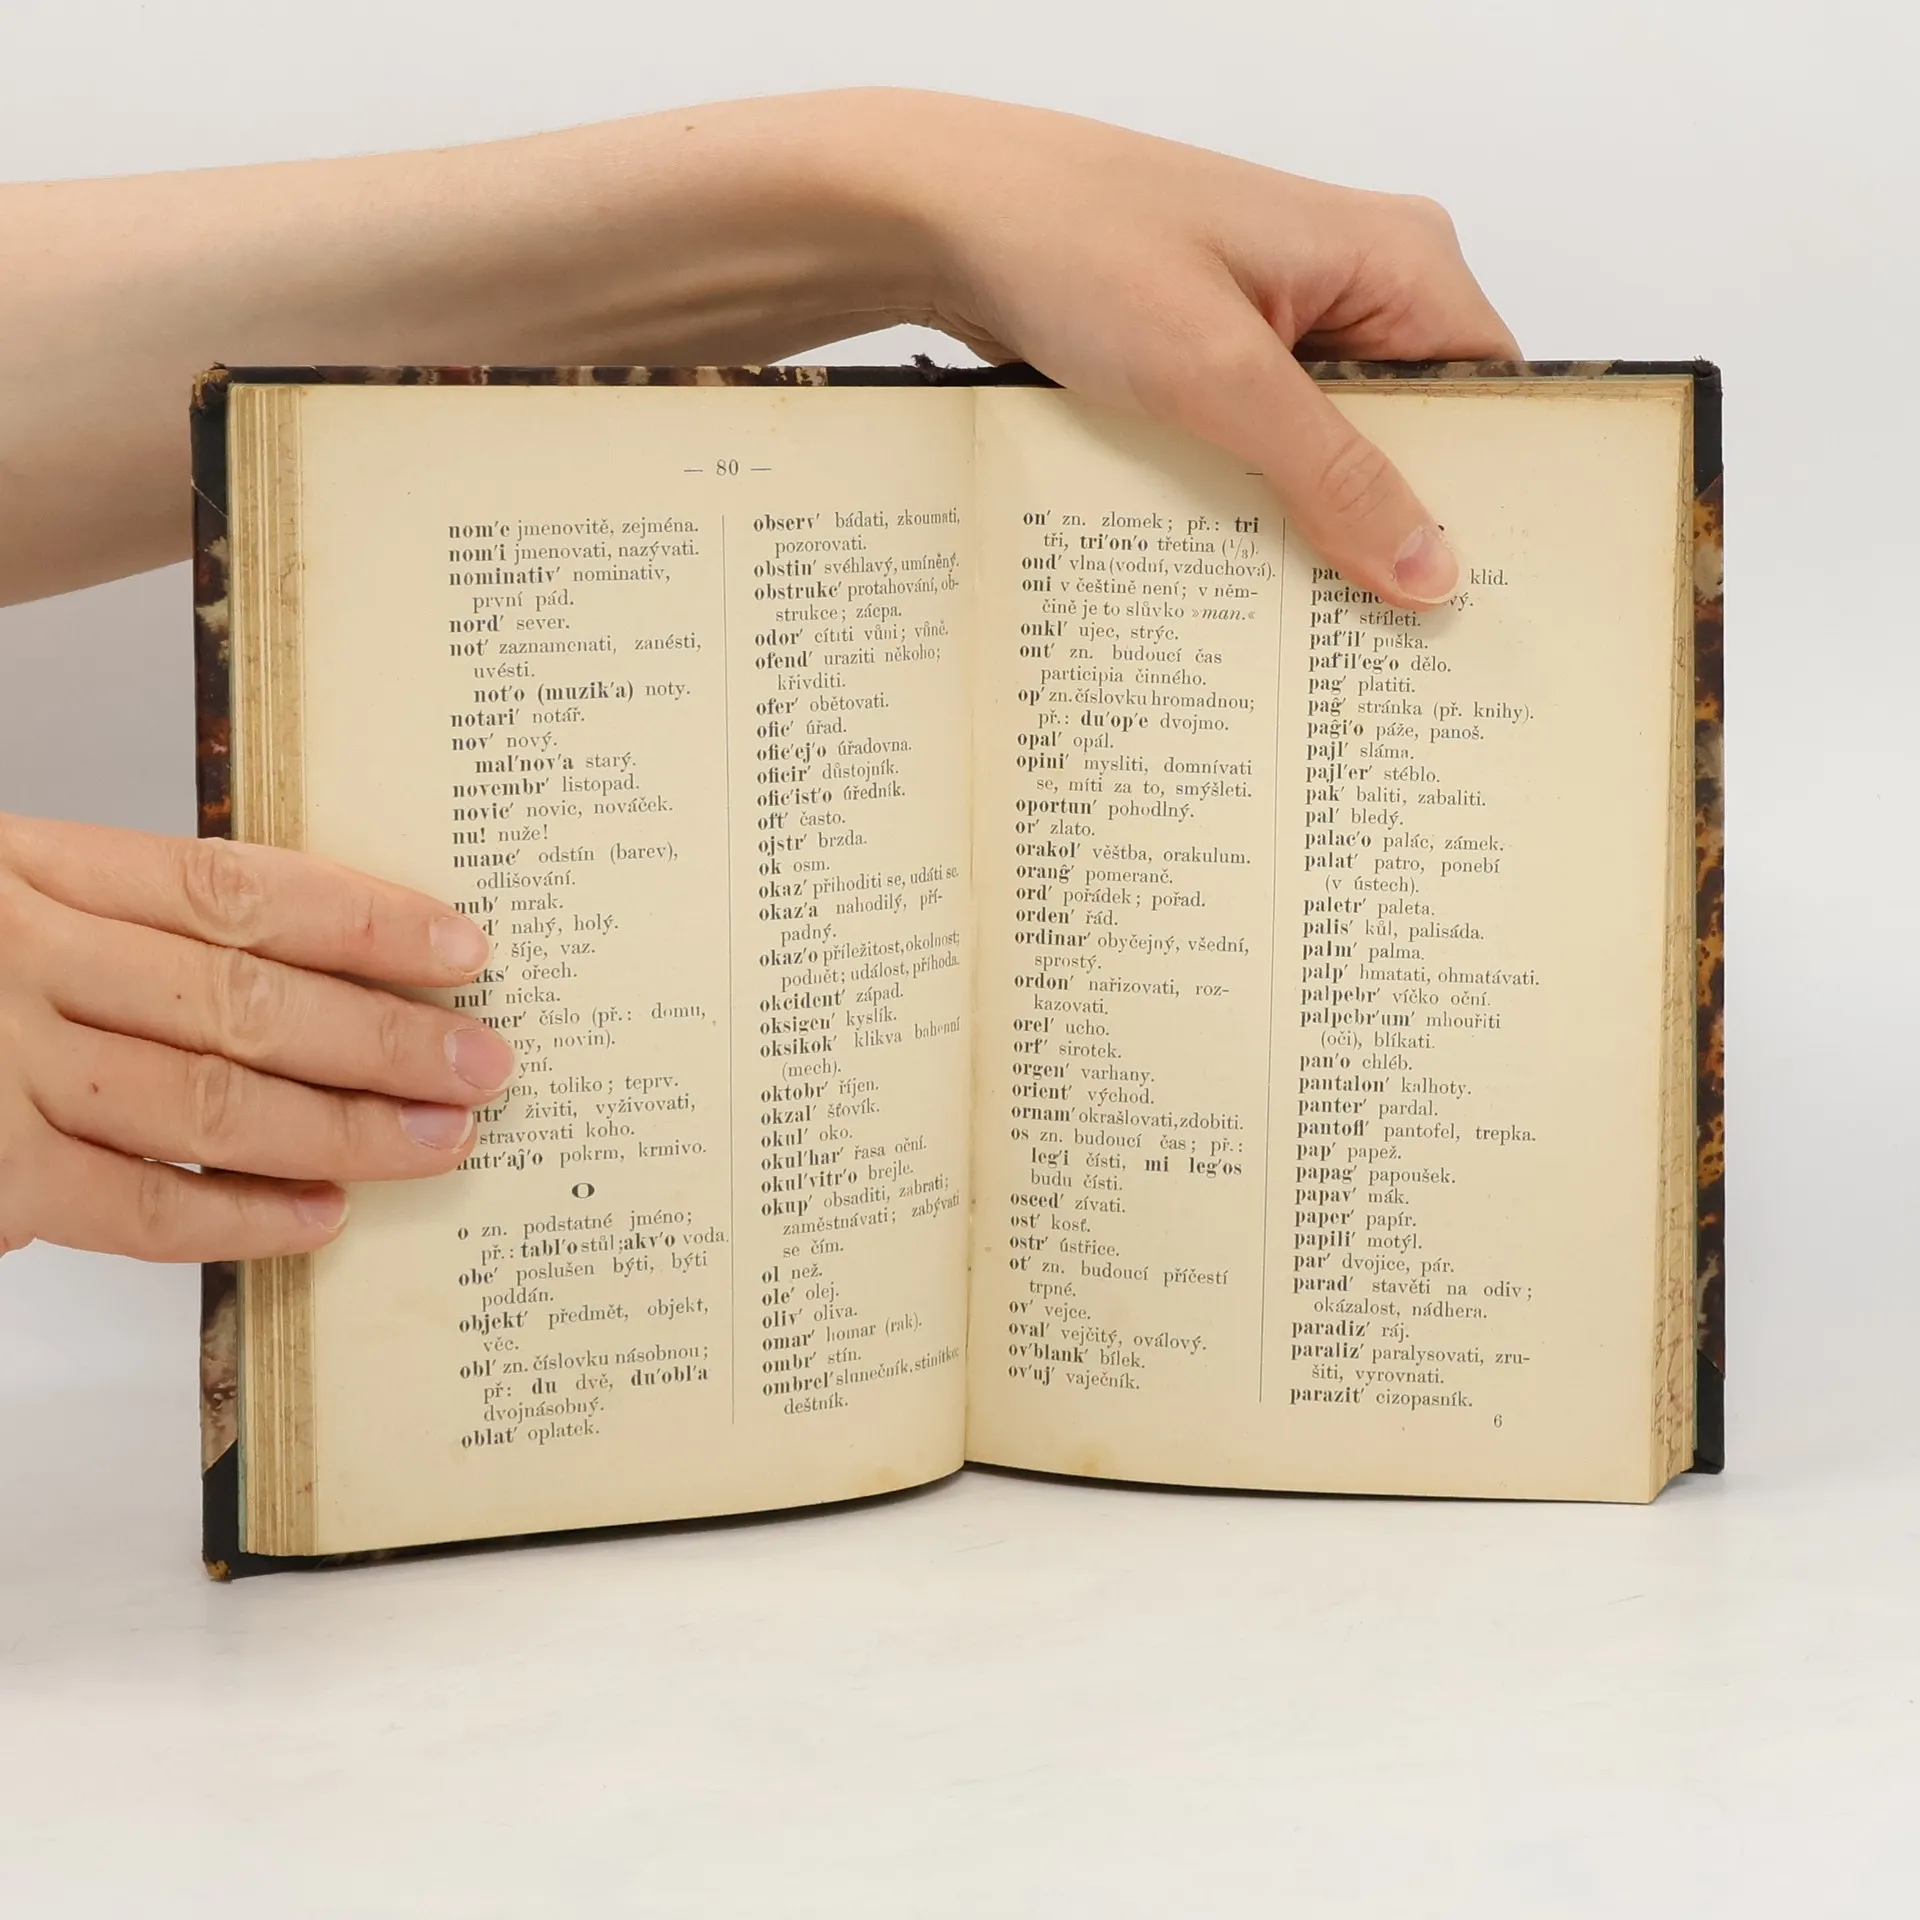 — 80 —
nom′e jmenovitě, zejména.
nom′i jmenovati, nazývati.
nominativ′ nominativ,
první pád.
nord′ sever.
not′ zaznamenati, zanésti,
uvésti.
not′o (muzik′a) noty.
notari′ notář.
nov′ nový.
mal′nov′a starý.
novembr′ listopad.
novic′ novic, nováček.
nu! nuže!
nuanc′ odstín (barev),
odlišování.
nub′ mrak.
nahý, holý.
šíje, vaz.
ořech.
nul′ nicka.
číslo (př.: domu,
novin).
toliko; teprv.
živiti, vyživovati,
stravovati koho.
nutr′aĵ′o pokrm, krmivo.
O
o zn. podstatné jméno;
př.: tabl′o stůl; akv′o voda.
obe′ poslušen býti, býti
poddán.
objekt′ předmět, objekt,
věc.
obl′ zn. číslovku násobnou;
př: du dvě, du′obl′a
dvojnásobný.
oblat′ oplatek.
observ′ bádati, zkoumati,
pozorovati.
obstin′ svéhlavý, umíněný.
obstrukc′ protahování, ob-
strukce; zácpa.
odor′ cítiti vůni; vůně.
ofend′ uraziti někoho;
křivditi.
ofer′ obětovati.
ofic′ úřad.
ofic′ej′o úřadovna.
oficir′ důstojník.
ofic′ist′o úředník.
oft′ často.
ojstr′ brzda.
ok osm.
okaz′ přihoditi se, udáti se.
okaz′a nahodilý, pří-
padný.
okaz′o příležitost, okolnost;
podnět; událost, příhoda.
okcident′ západ.
oksigen′ kyslík.
oksikok′ klikva bahenní
(mech).
oktobr′ říjen.
okzal′ šťovík.
okul′ oko.
okul′har′ řasa oční.
okul′vitr′o brejle.
okup′ obsaditi, zabrati;
zaměstnávati; zabývati
se čím.
ol než.
ole′ olej.
oliv′ oliva.
omar′ homar (rak).
ombr′ stín.
ombrel′ slunečník, stinítko;
deštník.
on′ zn. zlomek; př.: tri
tři, tri′on′o třetina (¹/₃).
ond′ vlna (vodní, vzduchová).
oni v češtině není; v něm-
čině je to slůvko »man.«
onkl′ ujec, strýc.
ont′ zn. budoucí čas
participia činného.
op′ zn. číslovku hromadnou;
př.: du′op′e dvojmo.
opal′ opál.
opini′ mysliti, domnívati
se, míti za to, smýšleti.
oportun′ pohodlný.
or′ zlato.
orakol′ věštba, orakulum.
oranĝ′ pomeranč.
ord′ pořádek; pořad.
orden′ řád.
ordinar′ obyčejný, všední,
sprostý.
ordon′ nařizovati, roz-
kazovati.
orel′ ucho.
orf′ sirotek.
orgen′ varhany.
orient′ východ.
ornam′ okrašlovati, zdobiti.
os zn. budoucí čas; př.:
leg′i čísti, mi leg′os
budu čísti.
osced′ zívati.
ost′ kosť.
ostr′ ústřice.
ot′ zn. budoucí příčestí
trpné.
ov′ vejce.
oval′ vejčitý, oválový.
ov′blank′ bílek.
ov′uj′ vaječník.
klid.
paf′ stříleti.
paf′il′ puška.
paf′il′eg′o dělo.
pag′ platiti.
paĝ′ stránka (př. knihy).
paĝi′o páže, panoš.
pajl′ sláma.
pajl′er′ stéblo.
pak′ baliti, zabaliti.
pal′ bledý.
palac′o palác, zámek.
palat′ patro, ponebí
(v ústech).
paletr′ paleta.
palis′ kůl, palisáda.
palm′ palma.
palp′ hmatati, ohmatávati.
palpebr′ víčko oční.
palpebr′um′ mhouřiti
(oči), blíkati.
pan′o chléb.
pantalon′ kalhoty.
panter′ pardal.
pantofl′ pantofel, trepka.
pap′ papež.
papag′ papoušek.
papav′ mák.
paper′ papír.
papili′ motýl.
par′ dvojice, pár.
parad′ stavěti na odiv;
okázalost, nádhera.
paradiz′ ráj.
paraliz′ paralysovati, zru-
šiti, vyrovnati.
parazit′ cizopasník.
6